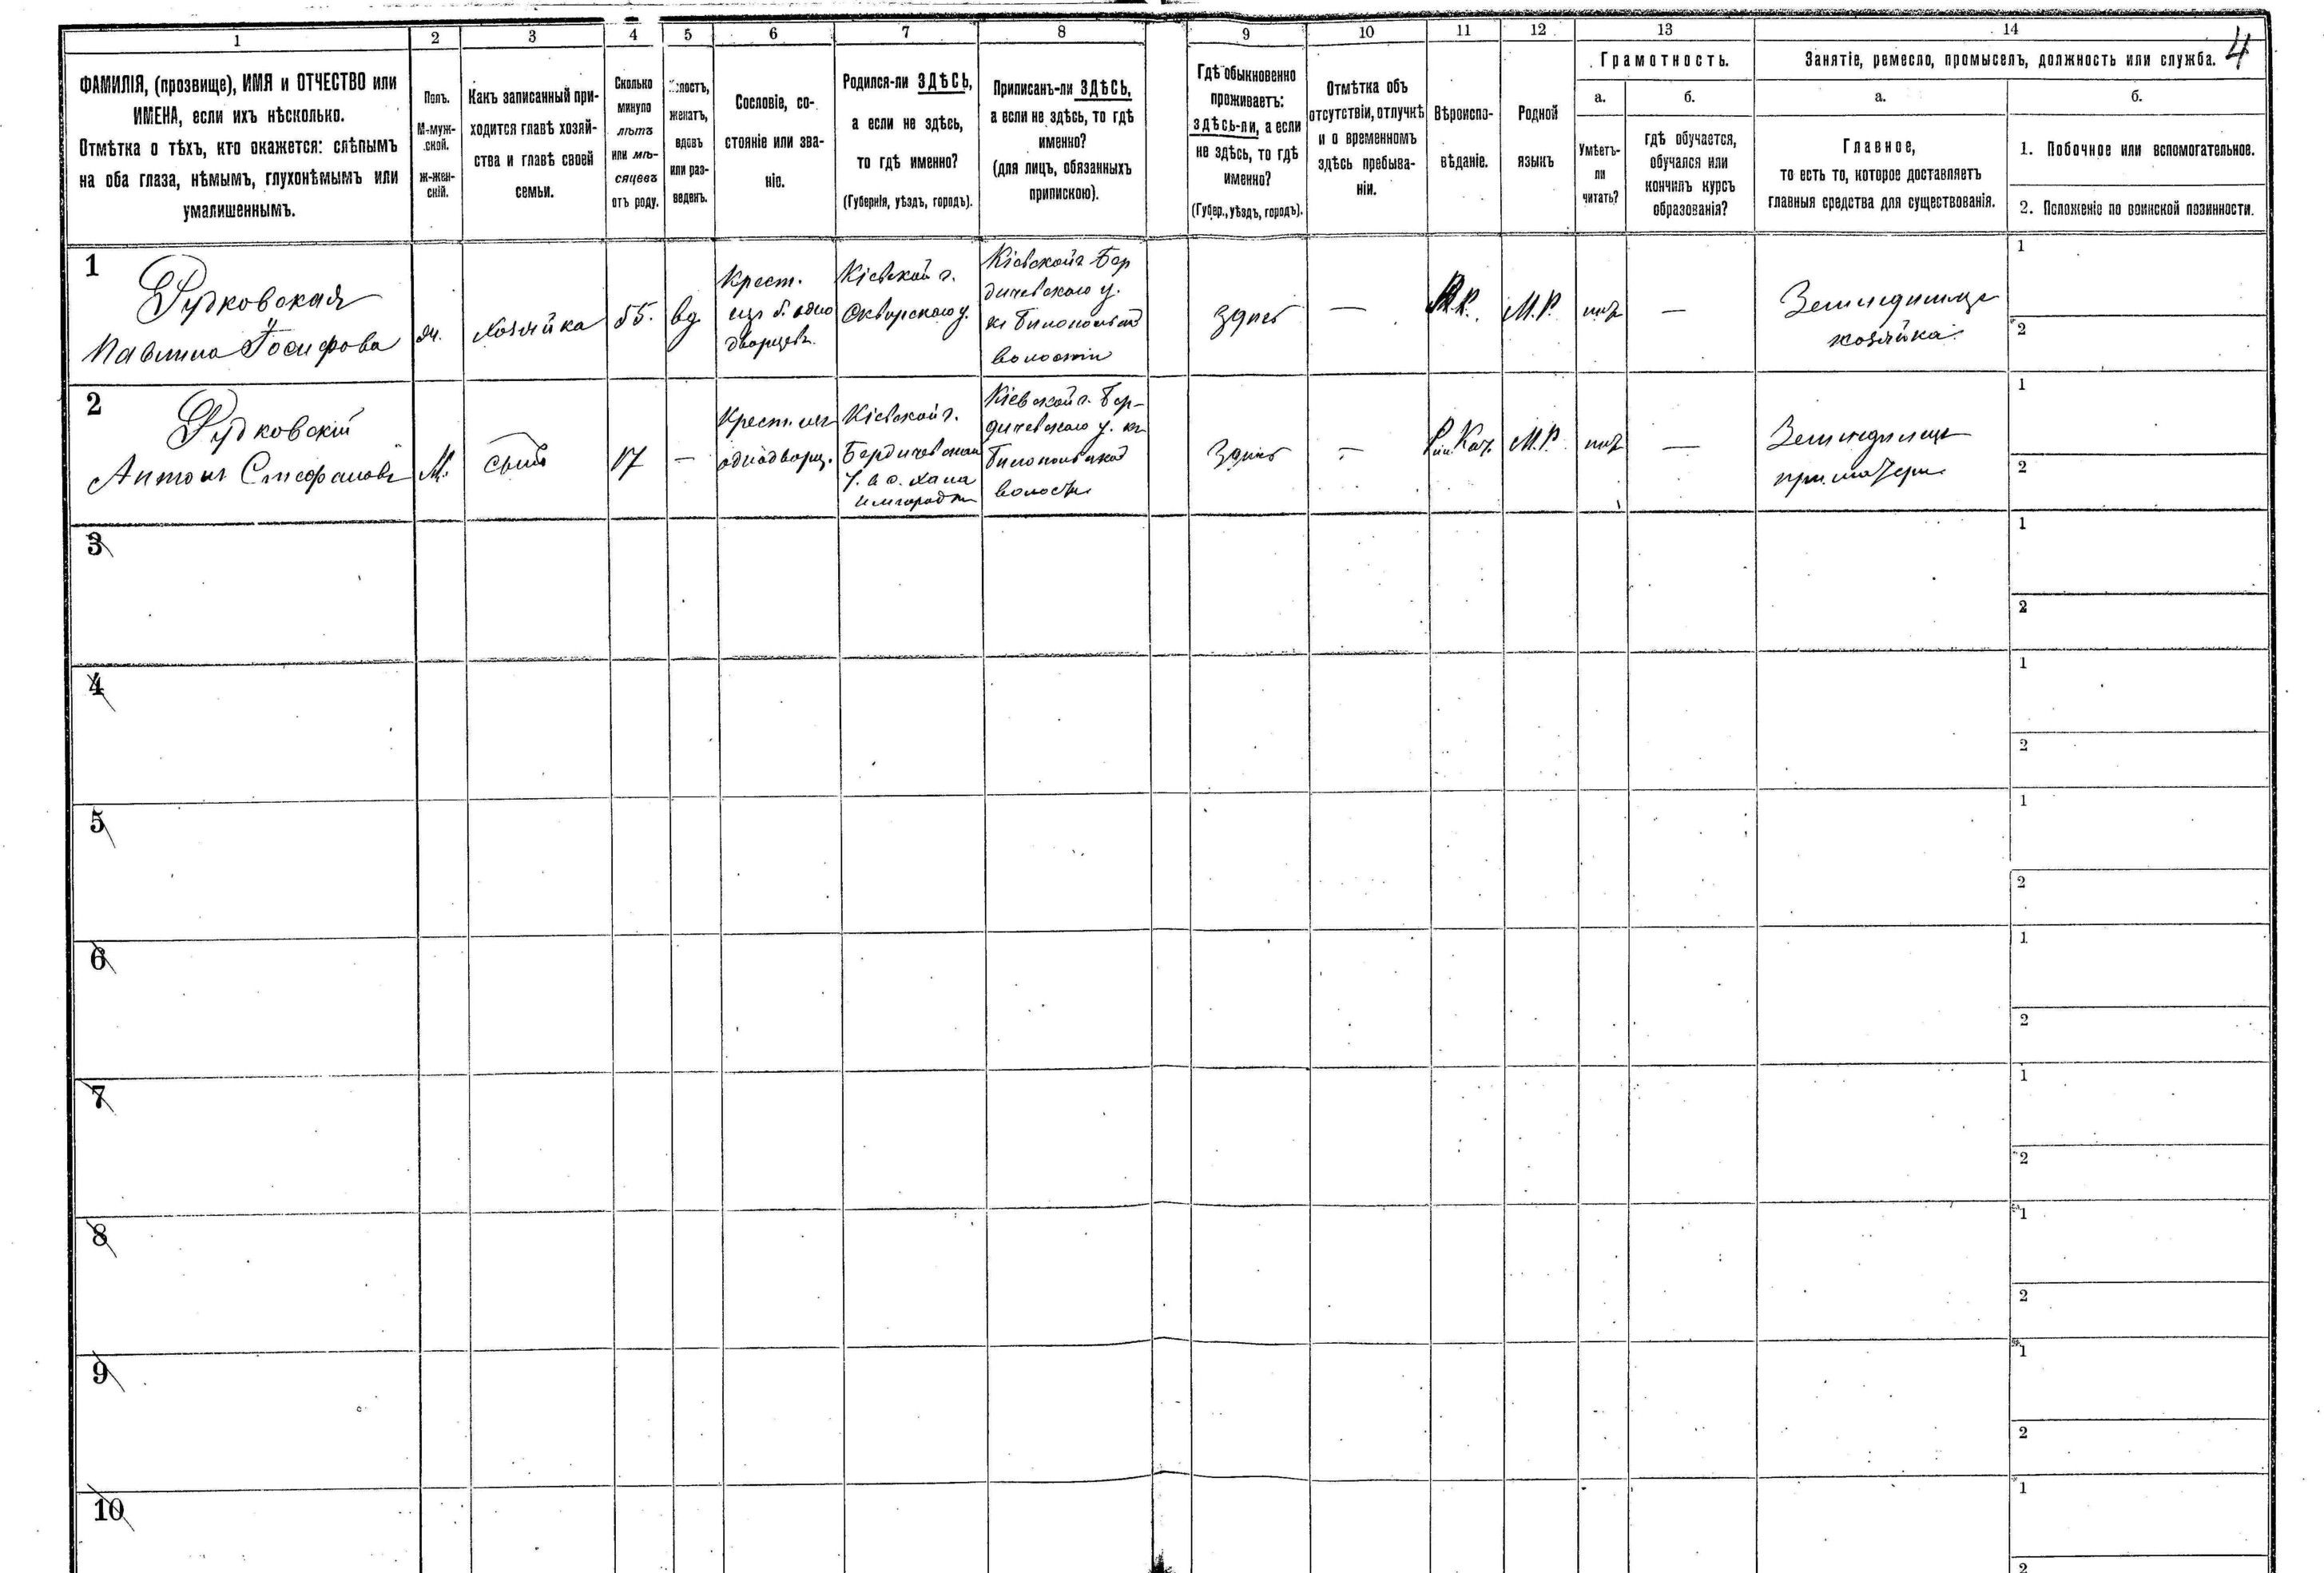 4
1
2
3
4
5
6
7
8
9
10
11
12
13
14
ФАМИЛІЯ, (прозвище), ИМЯ и ОТЧЕСТВО или
ИМЕНА, если ихъ нѣсколько.
Отмѣтка о тѣхъ, кто окажется: слѣпымъ
на оба глаза, нѣмымъ, глухонѣмымъ или
умалишеннымъ.
Полъ.
М-муж-
ской.
ж-жен-
скій.
Какъ записанный при-
ходится главѣ хозяй-
ства и главѣ своей
семьи.
Сколько
минуло
лѣтъ
или мѣ-
сяцевъ
отъ роду.
холостъ,
женатъ,
вдовъ
или раз-
веденъ.
Сословіе, со-
стояніе или зва-
ніе.
Родился-ли ЗДѢСЬ,
а если не здѣсь,
то гдѣ именно?
(Губернія, уѣздъ, городъ).
Приписанъ-ли ЗДѢСЬ,
а если не здѣсь, то гдѣ
именно?
(для лицъ, обязанныхъ
припискою).
Гдѣ обыкновенно
проживаетъ:
ЗДѢСЬ-ли, а если
не здѣсь, то гдѣ
именно?
(Губер., уѣздъ, городъ).
Отмѣтка объ
отсутствіи, отлучкѣ
и о временномъ
здѣсь пребыва-
ніи.
Вѣроиспо-
вѣданіе.
Родной
языкъ
Грамотность.
а.
Умѣетъ-
ли
читать?
б.
гдѣ обучается,
обучался или
кончилъ курсъ
образованія?
Занятіе, ремесло, промыселъ, должность или служба.
а.
Главное,
то есть то, которое доставляетъ
главныя средства для существованія.
б.
1. Побочное или вспомогательное.
2. Положеніе по воинской повинности.
1
Рудковская
Павлина Іосифова
ж.
хозяйка
55.
вд
Крест.
изъ б. одно
дворцевъ
Кіевской г.
Сквирского у.
Кіевской г Бер
дичевского у.
къ Бѣлопольской
волости
здѣсь
—
Р.К.
М.Р.
нѣтъ
—
Земледѣлица
хозяйка
1
2
2
Рудковскій
Антонъ Стефановъ
М.
сынъ
17
—
Крест. изъ
однодворц.
Кіевской г.
Бердичевскаго
Кіевской г. Бер-
дичевского у. къ
Бѣлопольской
волости
Здѣсь
—
Рим. Кат.
М.Р.
нѣтъ
—
Земледѣлецъ
при матери
1
2
3
1
2
4
1
2
5
1
2
6
1
2
7
1
2
8
1
2
9
1
2
10
1
2